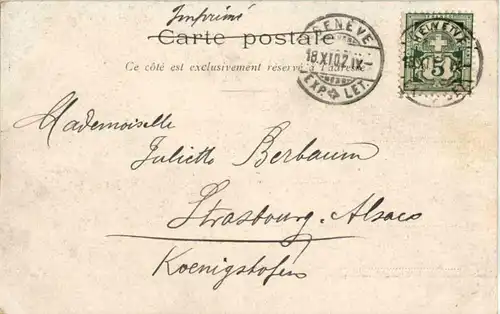 Imprimé
Carte postale
Ce côté est exclusivement réservé à l'adresse
GENÈVE
18.XI.02.IX
EXP. LET.
GENÈVE
5
Mademoiselle
Juliette Berbaum
Strasbourg. Alsace
Koenigshofen